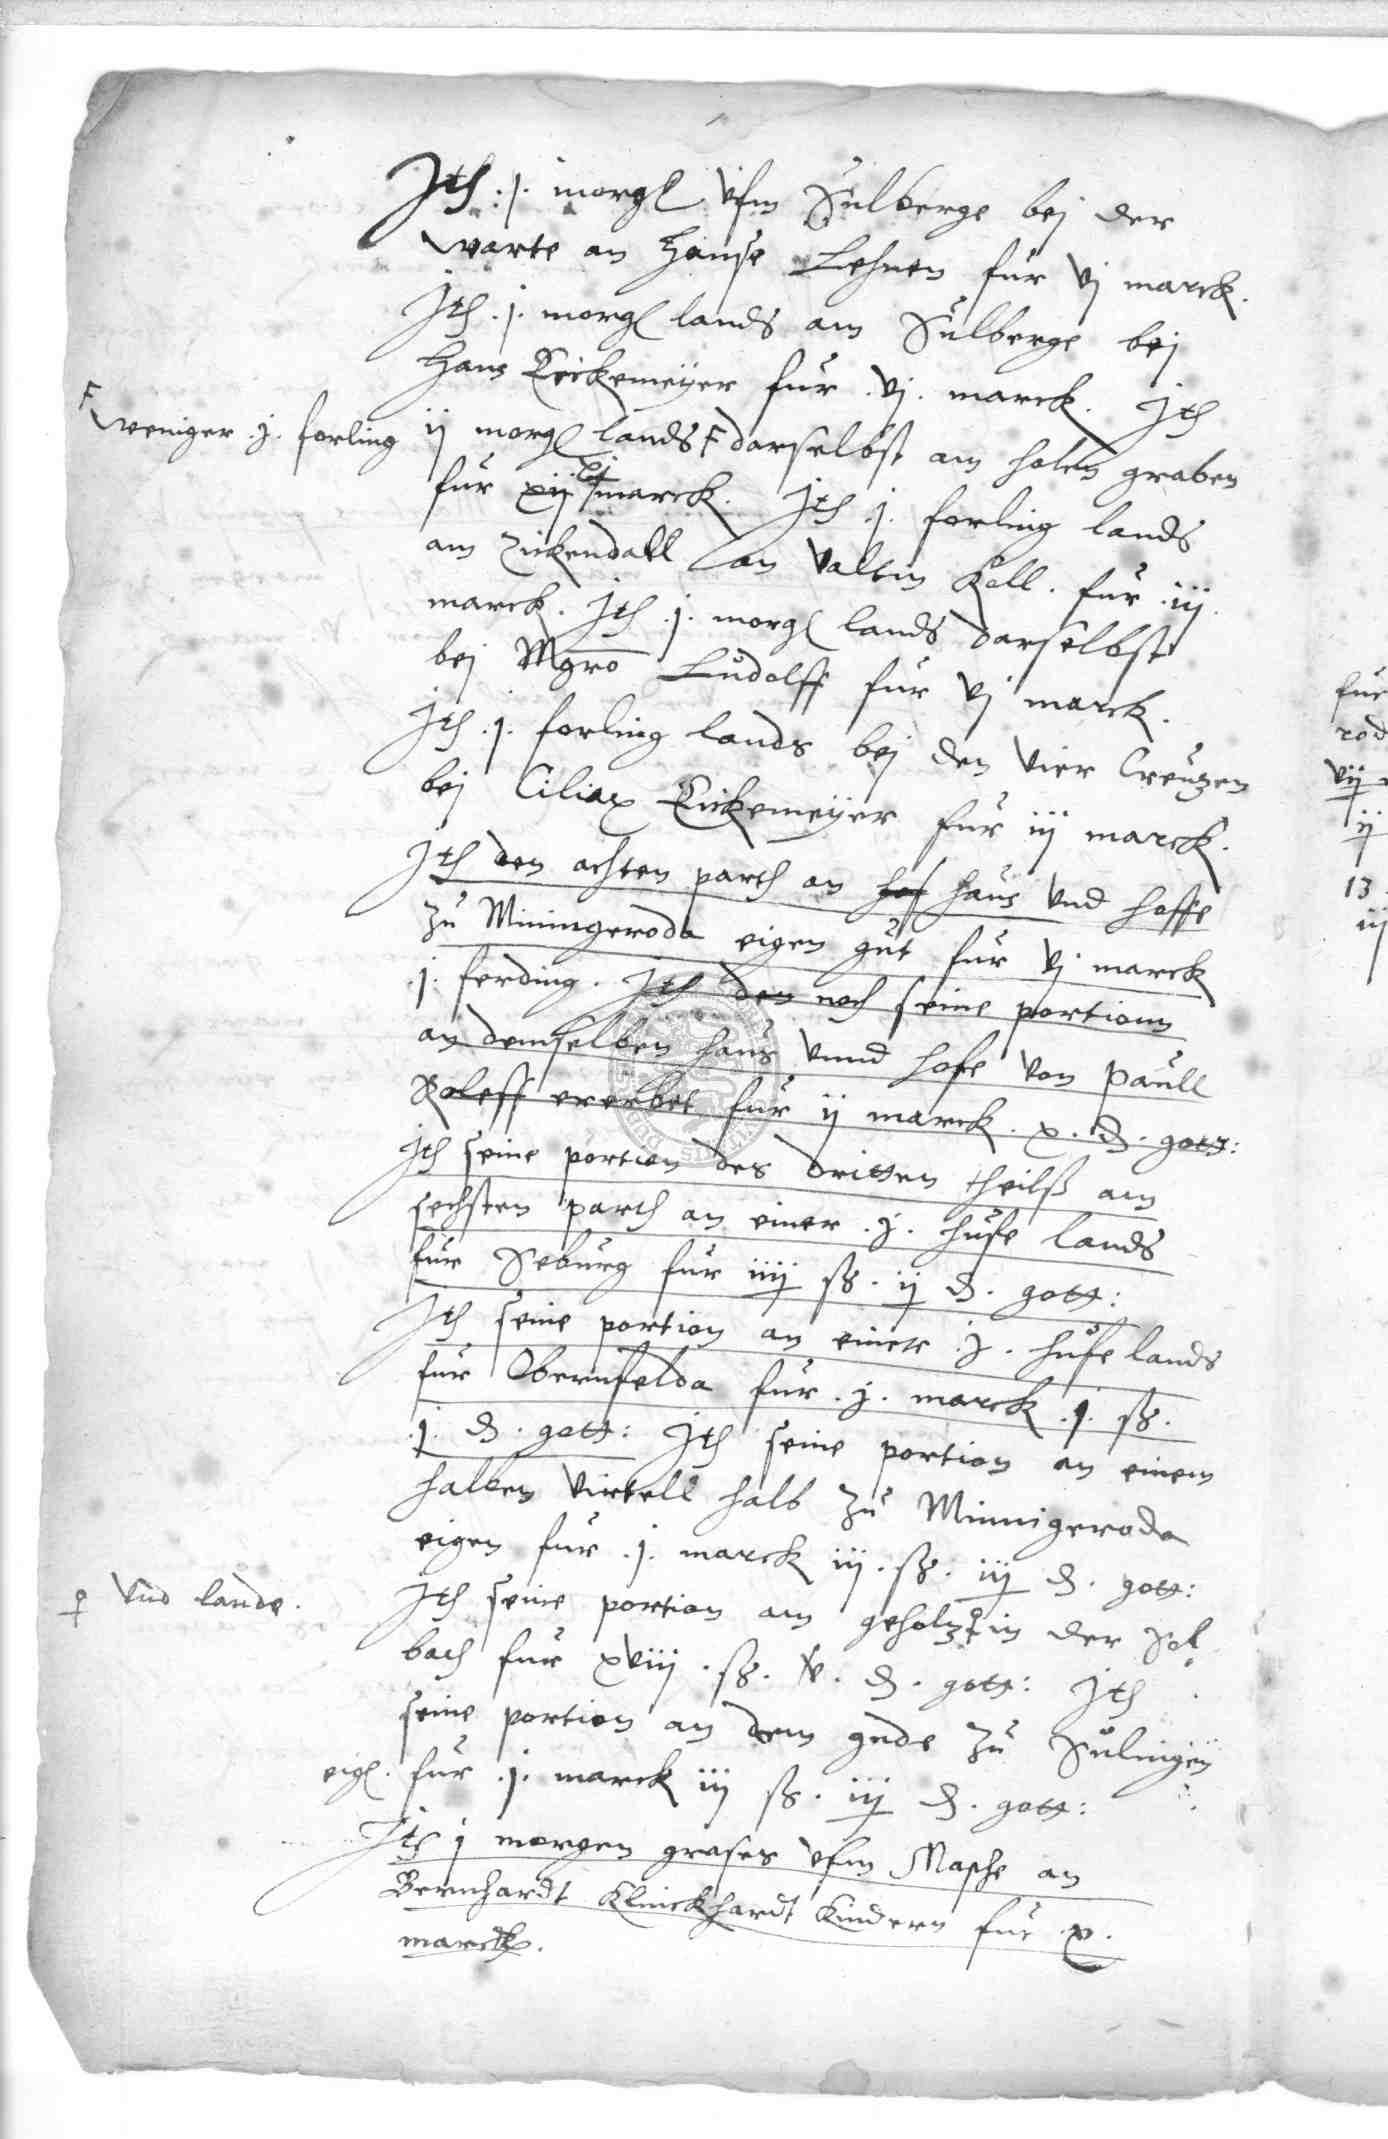 Jth .j. morgl vfm Sulberge bej der
warte an Hanse Lehnen fur vj marck.
Jth .j. morgl lands am Sulberge bej
Hans Eickemeyer fur .vj. marck. Jth
F weniger .j. forling
ij morgl lands F darselbst am holen graben
fur xij marck. Jth .j. forling lands
am Zickendall an Valtin Koll. fur .iij.
marck. Jth .j. morgl lands darselbst
bej Mgro Ludolff fur vj marck.
Jth .j. forling lands bej den vier Creutzen
bej Ciliax Eickemeyer fur iij marck.
Jth den achten parth an hof haus vnd hoffe
zu Minnigeroda eigen gut fur vj marck
.j. ferding. Jth den noch seine portionn
an demselben haus vnnd hofe von Paull
Roleff ererbet fur ij marck. x. d. gott:
Jth seine portion des dritten theilß am
sechsten parth an einer .j. hufe lands
fur Seburg fur iiij ß. ij d. gott:
Jth seine portion an einer .j. hufe lands
fur Obernfelda fur .j. marck .j. ß.
.j. d. gott: Jth seine portion an einem
halben virtell halb zu Minnigeroda
eigen fur .j. marck iij. ß. iij d. gott:
vnd lande.
Jth seine portion am geholz in der Sol
bach fur xviij. ß. v. d. gott: Jth
seine portion an dem gude zu Sulingen
eigl. fur .j. marck iij ß. iij d. gott:
Jth j morgen grases vfm Masche an
Bernhardt Klinckhardt Kindern fur x.
marck.
fur
rod
vij
ij
13
iij